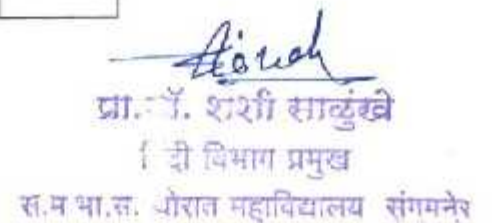 प्रा. डॉ. शशी साळुंखे
हिंदी विभाग प्रमुख
स.म.भा.सं. थोरात महाविद्यालय संगमनेर